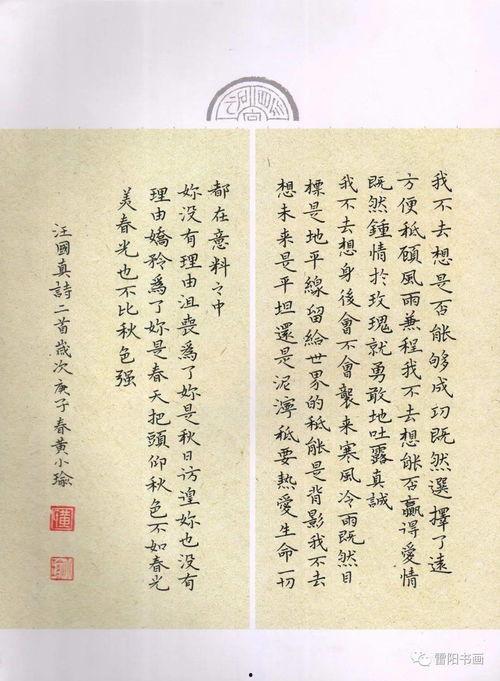 我不去想是否能够成功既然選擇了遠
方便秪碩風雨兼程我不去想能否贏得愛情
既然鍾情於玫瑰就勇敢地吐露真誠
我不去想身後會不會襲来寒風冷雨既然目
標是地平線留給世界的秪能是背影我不去
想未来是平坦還是泥濘秪要熱愛生命一切
都在意料之中
妳没有理由沮喪爲了妳是秋日彷徨妳也没有
理由嬌矜爲了妳是春天把頭仰秋色不如春光
美春光也不比秋色强
汪國真詩二首歲次庚子春黄小瑜
雷阳书画